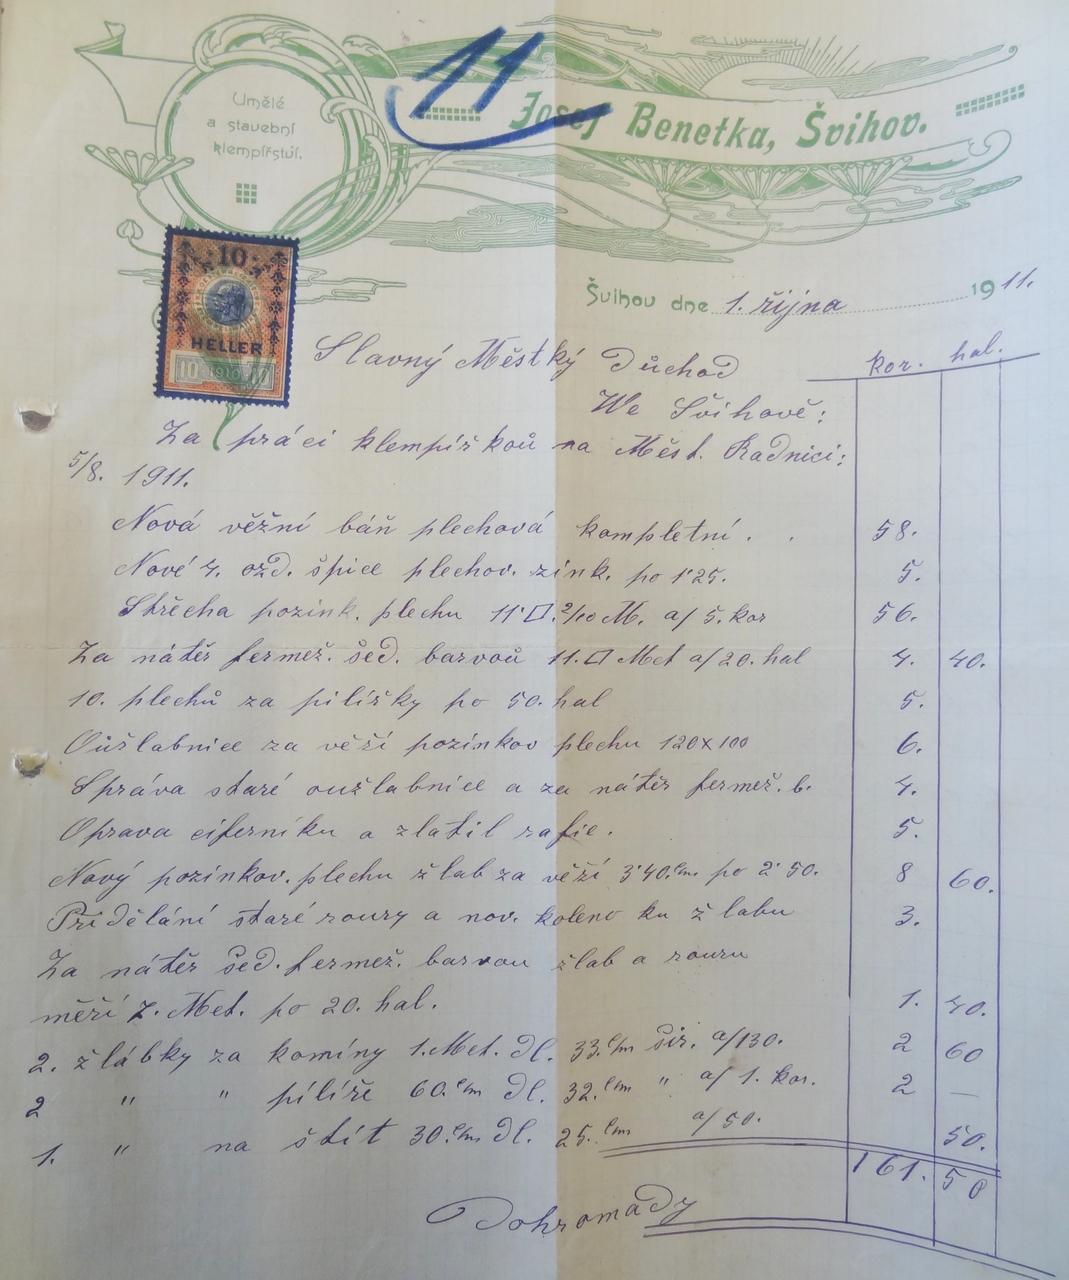 11
Umělé
a stavební
klempířství.
Josef Benetka, Švihov.
10
HELLER
10 1910 10
Švihov dne 1. října 1911.
Slavný Městký Důchod
kor. hal.
We Švihově:
Za práci klempířkoů na Měst. Radnici:
5/8. 1911.
Nová věžní báň plechová kompletní . . 58.
Nové 4. ozd. špice plechov. zink. po 1'25. 5.
Střecha pozink. plechu 11'□.2/10 M. a/ 5. kor 56.
Za nátěr fermež. šed. barvoů 11.□ Met a/20. hal 4. 40.
10. plechů za pilířky po 50. hal 5.
Oůžlabnice za věží pozinkov plechu 120x100 6.
Správa staré oužlabnice a za nátěr fermež. b. 4.
Oprava ciferníku a zlatil rafie. 5.
Nový pozinkov. plechu žlab za věží 3'40.c/m. po 2'50. 8 60.
Přidělání staré roury a nov. koleno ku žlabu 3.
Za nátěr šed. fermež. barvou žlab a rouru
měří 7. Met. po 20. hal. 1. 40.
2. žlábky za komíny 1. Met. dl. 33.c/m šir. a/130. 2 60
2 " " pilíře 60.c/m dl. 32.c/m " a/ 1. kor. 2 —
1. " na štít 30.c/m dl. 25.c/m a/50. 50.
161. 50
Dohromady